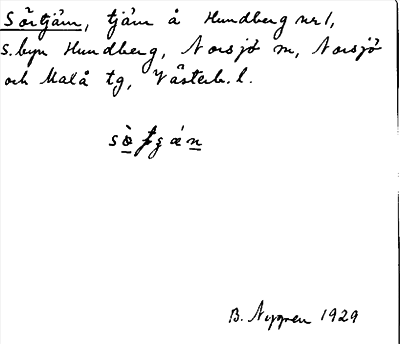 Sörtjärn, tjärn å Hundberg nr 1,
s. byn Hundberg, Norsjö m, Norsjö
och Malå tg, Västerb. l.
B. Nygren 1929